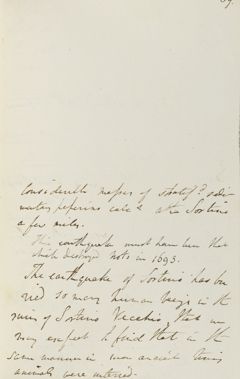 considerable masses of stratif.d sedi-
mentary peperino calc.s after Sortino
a few miles.
This earthquake must have been that
which destroyed Noto in 1693.
The earthquake of Sortino has bu-
ried so many human beings in the
ruins of Sortino Vecchio, that we
may expect to find that in the
same manner in more ancient times
animals were interred.